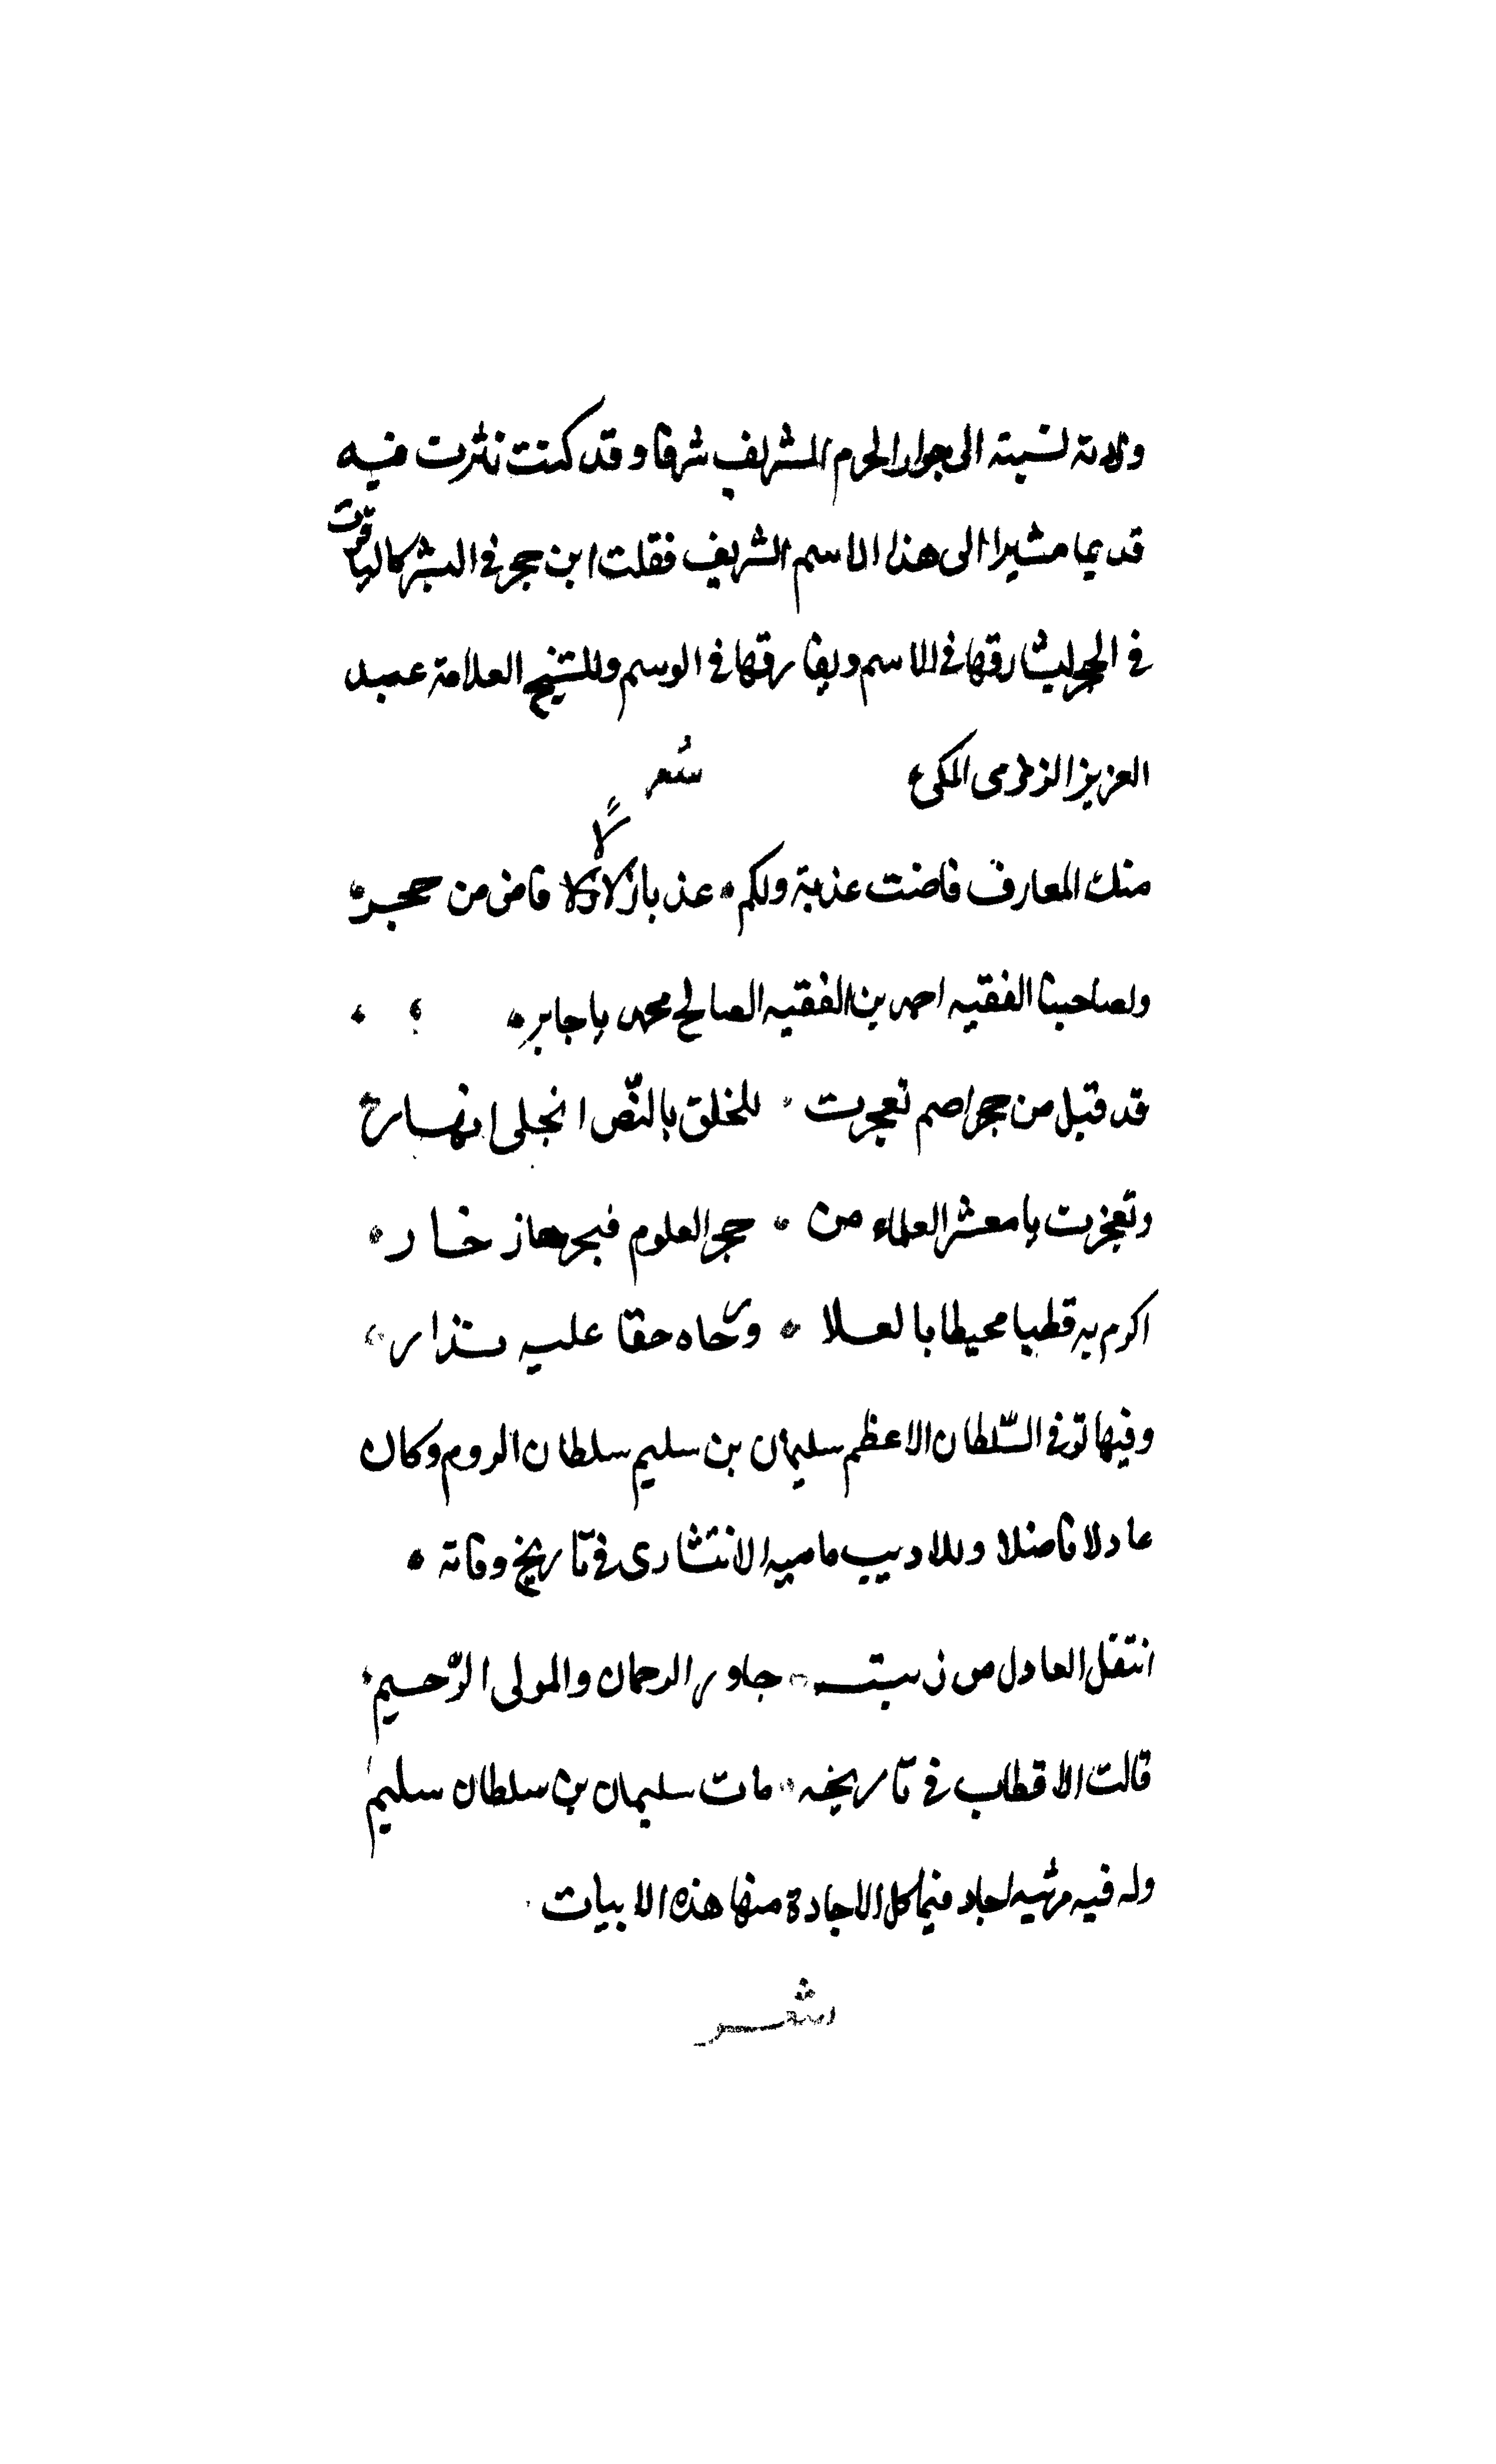 وزادته نسبته الى جوار الحرم الشريف شرفا وقد كنت نثرت فيه
قديما مشيرا الى هذا الاسم الشريف فقلت ابن حجر في البشر كالياقوت
في الحجر يشارقها في الاسم ويفارقها في الوسم وللشيخ العلامة عبد
العزيز الزمزمى المكى
شعر
منك المعارف فاضت عذبة ولكم عذبا زلالا فاض من حجر
ولصاحبنا الفقيه احمد بن الفقيه الصالح محمد باجابر
قد قيل من حجر اصم تفجرت للخلق بالنّص الجلى انهار
وتفجرت يا معشر العلماء من حجر العلوم فبحرها زخار
اكرم به قطبا محيطا بالعلا ورحاه حقا عليه تدار
وفيها توفى السّلطان الاعظم سليمان بن سليم سلطان الروم وكان
عادلا فاضلا وللاديب مامية الانقشارى فى تاريخ وفاته
انتقل العادل من زينته جاور الرحمان والمولى الرّحيم
قالت الاقطاب في تاريخه مات سليمان بن سلطان سليم
وله فيه مرثيه اجاد فيها كل الاجادة منها هذه الابيات
شعر